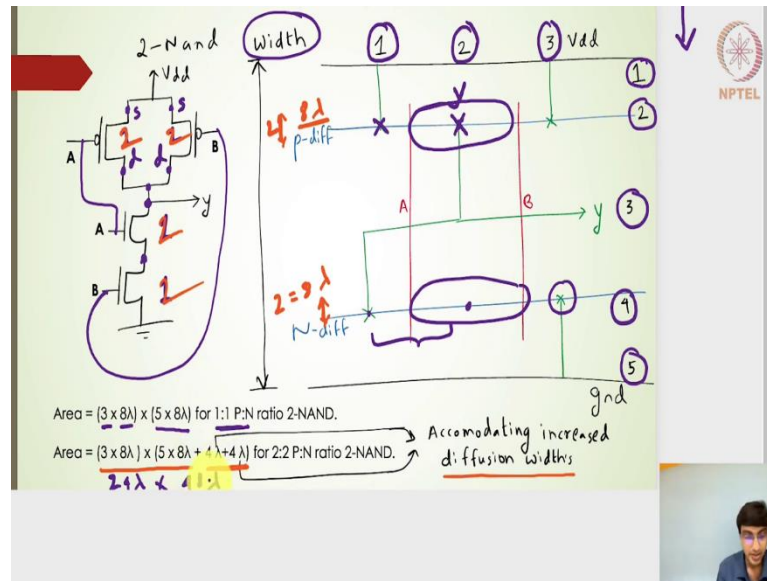 2-Nand
Width
1
2
3
Vdd
1
NPTEL
Vdd
s
s
2
2
A
B
d
d
2
8λ
p-diff
y
2
A
B
y
3
y
A
2
B
2
2 = 8λ
N-diff
4
5
gnd
Area = (3 x 8λ) x (5 x 8λ) for 1:1 P:N ratio 2-NAND.
Area = (3 x 8λ ) x (5 x 8λ + 4 λ+4 λ) for 2:2 P:N ratio 2-NAND.
Accomodating increased
diffusion widths
24λ x 48λ